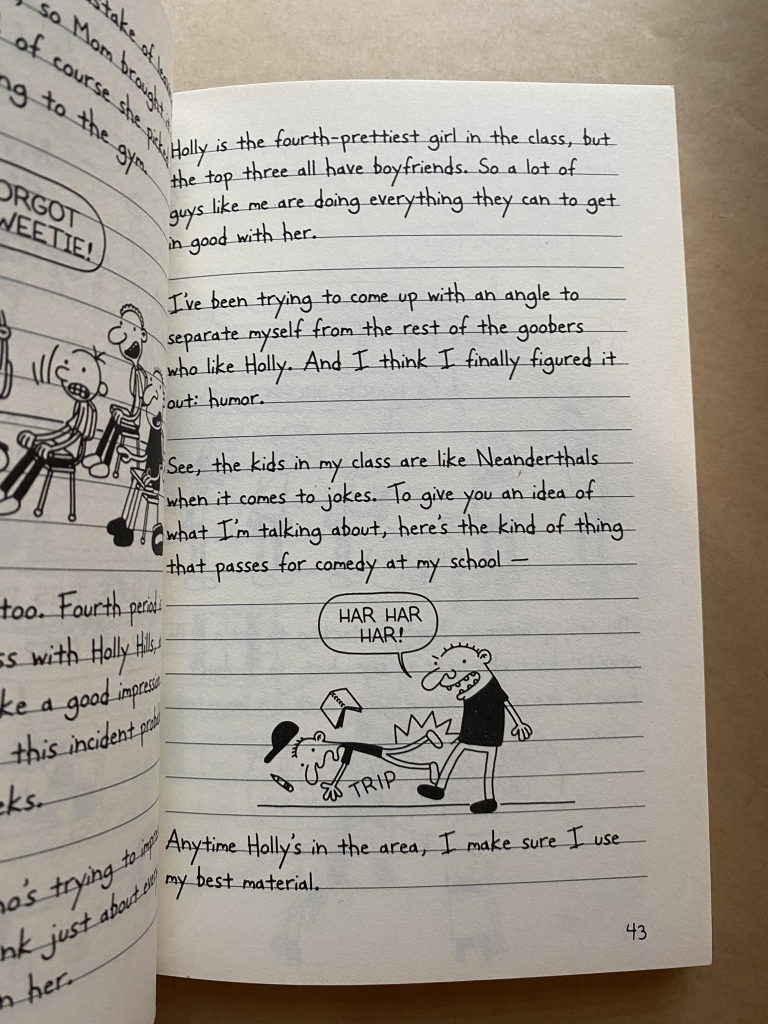 stake of
so Mom brought
of course she
ng to the gym.
ORGOT
WEETIE!
too. Fourth period
ss with Holly Hills,
ke a good
this incident
eks.
ho's trying to
nk just about
n her.
Holly is the fourth-prettiest girl in the class, but
the top three all have boyfriends. So a lot of
guys like me are doing everything they can to get
in good with her.
I've been trying to come up with an angle to
separate myself from the rest of the goobers
who like Holly. And I think I finally figured it
out: humor.
See, the kids in my class are like Neanderthals
when it comes to jokes. To give you an idea of
what I'm talking about, here's the kind of thing
that passes for comedy at my school —
HAR HAR
HAR!
TRIP
Anytime Holly's in the area, I make sure I use
my best material.
43